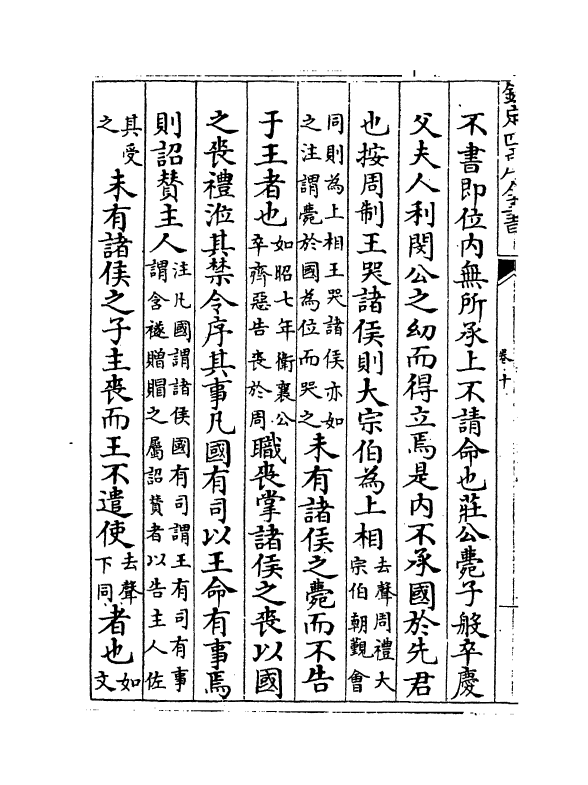 欽定四庫全書
卷十
不書即位內無所承上不請命也莊公薨子般卒慶
父夫人利閔公之幼而得立焉是內不承國於先君
也按周制王哭諸侯則大宗伯為上相去聲周禮大宗伯朝覲會
同則為上相王哭諸侯亦如之注謂薨於國為位而哭之未有諸侯之薨而不告
于王者也如昭七年衛襄公卒齊惡告喪於周職喪掌諸侯之喪以國
之喪禮涖其禁令序其事凡國有司以王命有事焉
則詔贊主人注凡國謂諸侯國有司謂王有司有事謂含襚贈賵之屬詔贊者以告主人佐
其受之未有諸侯之子主喪而王不遣使去聲下同者也如文